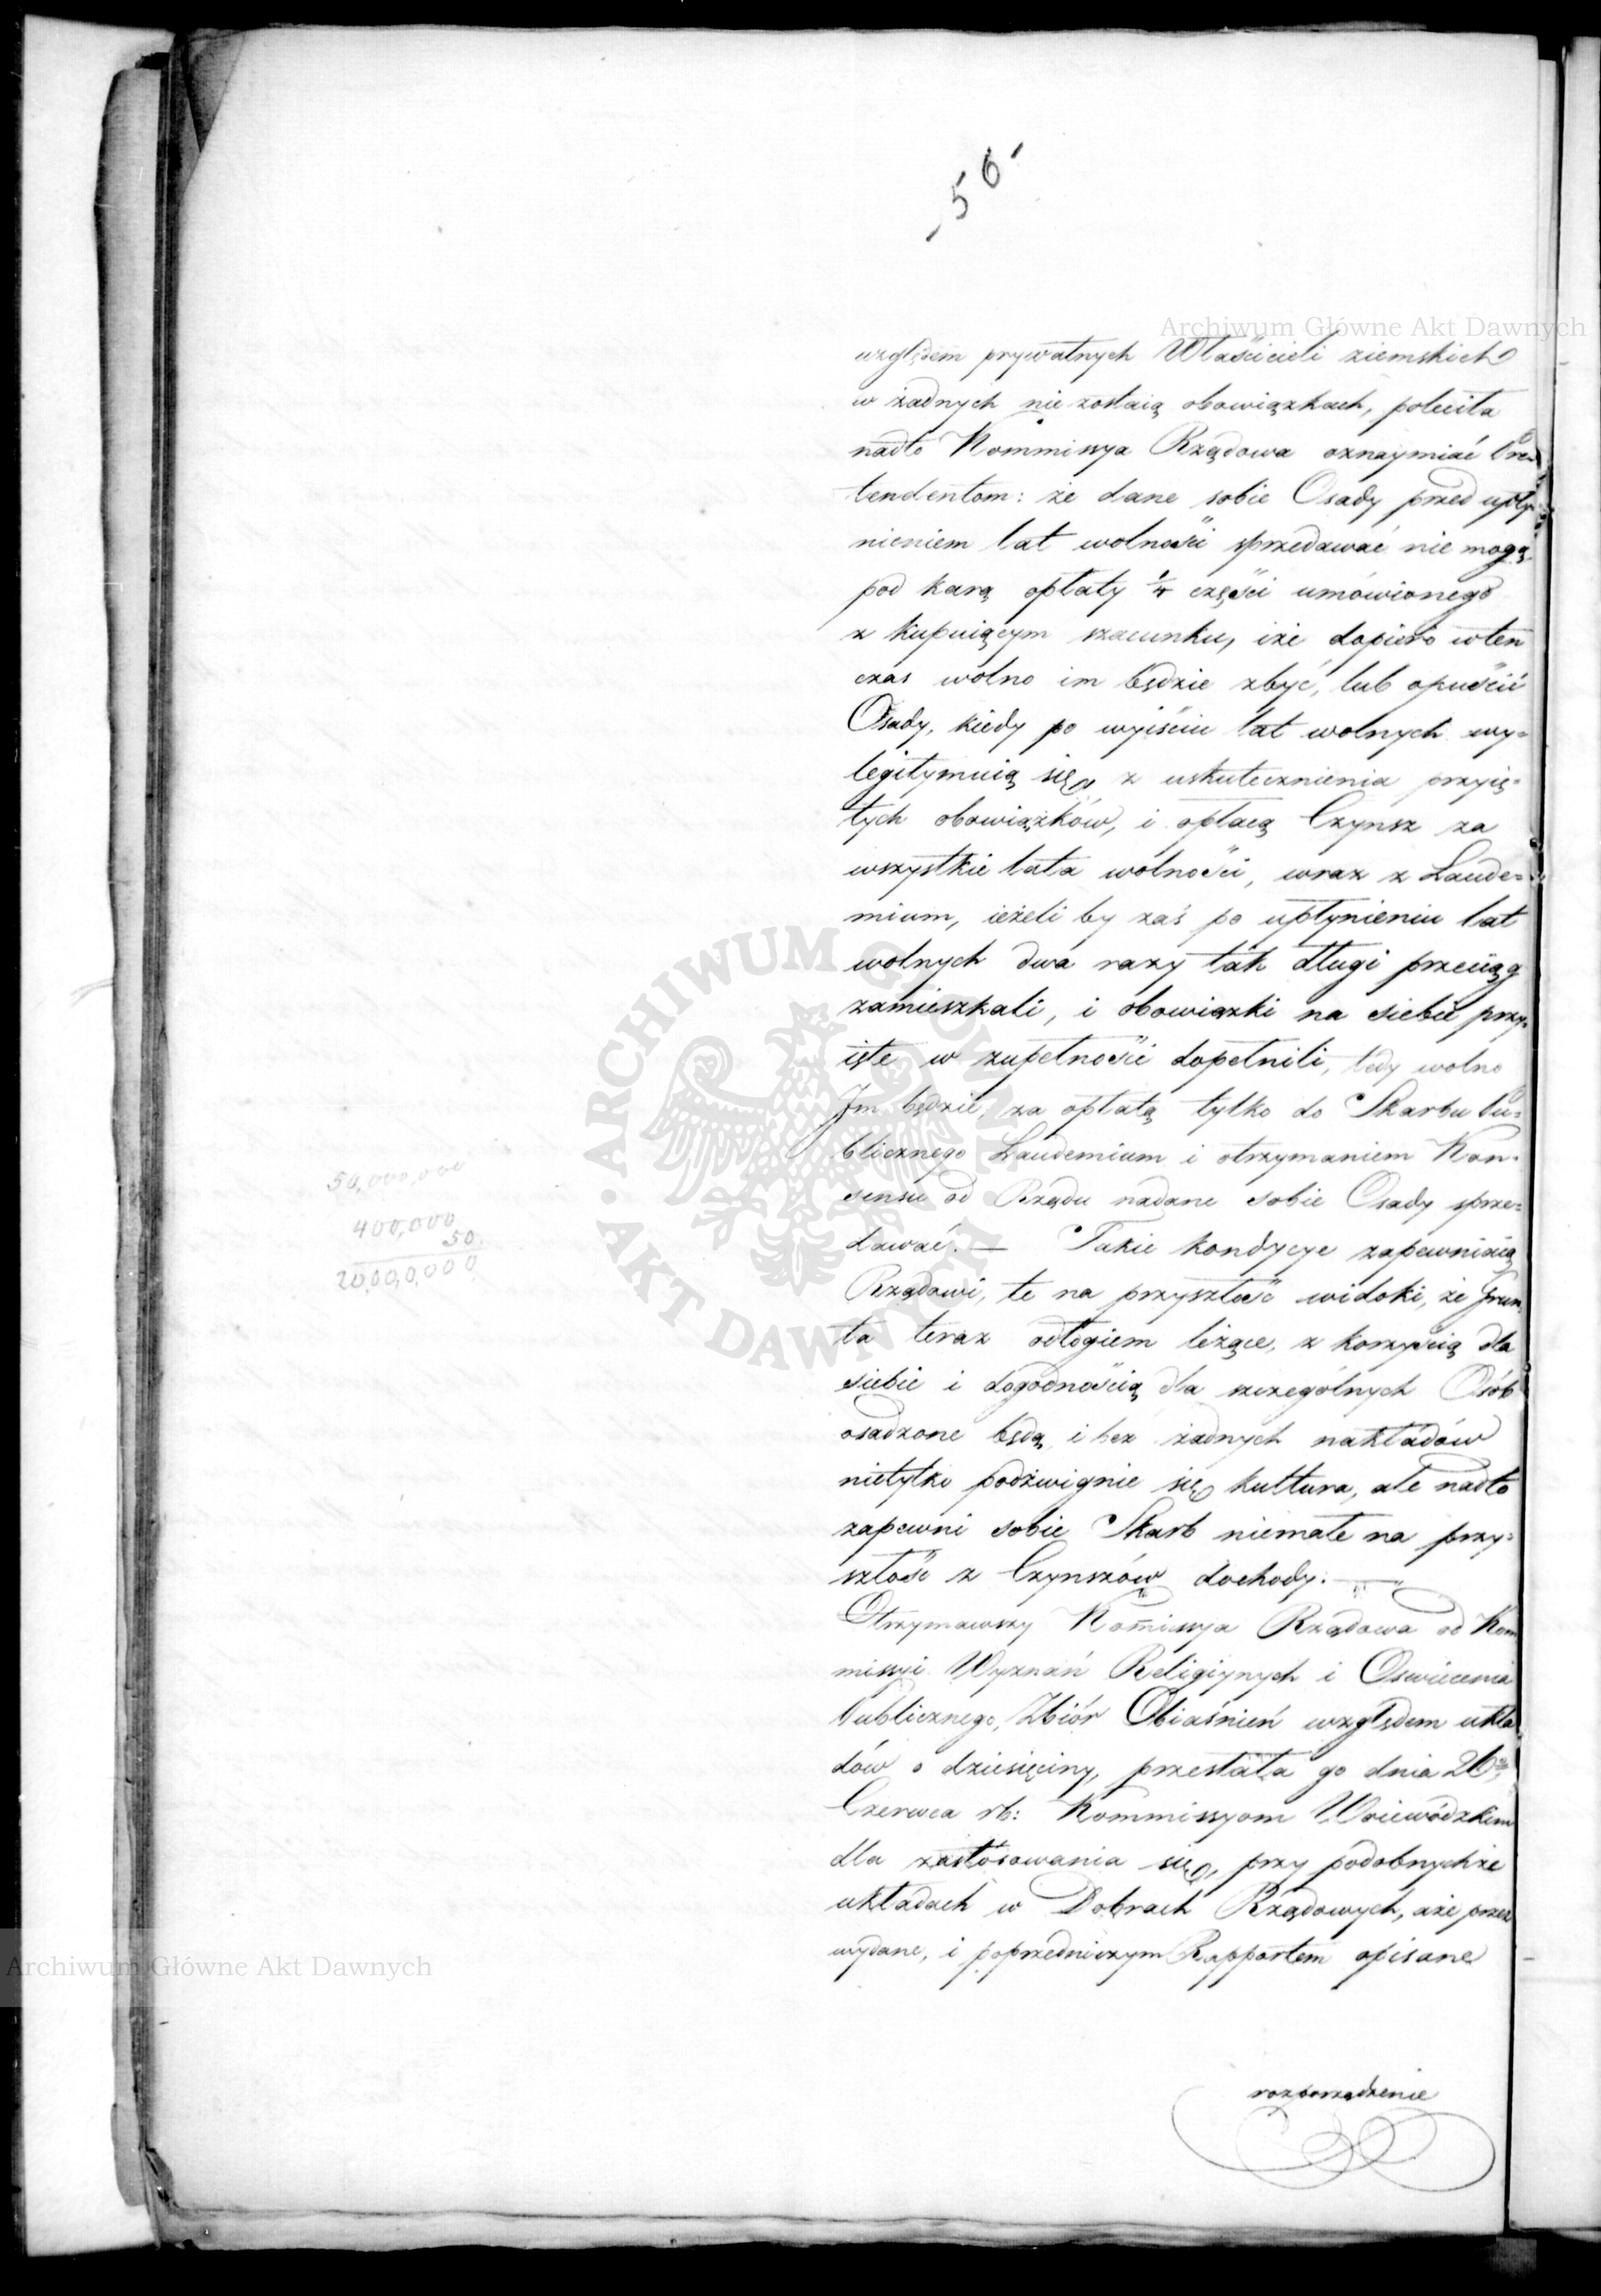 - 56 -
Archiwum Główne Akt Dawnych
względem prywatnych Właścicieli ziemskich
w żadnych nie zostaią obowiązkach, poleciła
nadto Kommissya Rządowa oznaymiać Pre-
tendentom: że dane sobie Osady przed upły-
nieniem lat wolności sprzedawać nie mogą
pod karą opłaty 1/4 części umówionego
z kupuiącym szacunku, iże dopiero w ten
czas wolno im będzie zbyć, lub opuścić
Osady, kiedy po wyiściu lat wolnych wy=
legitymuią się z uskutecznienia przyię=
tych obowiązków, i opłacą Czynsz za
wszystkie lata wolności, wraz z Laude=
mium, ieżeli by zaś po upłynieniu lat
wolnych dwa razy tak długi przeciąg
zamieszkali, i obowiązki na siebie przy=
ięte w zupełności dopełnili, tedy wolno
Im będzie, za opłatą tylko do Skarbu Pu=
blicznego Laudemium i otrzymaniem Kon=
sensu od Rządu nadane sobie Osady sprze=
dawać. — Takie kondycye zapewniaią
Rządowi, te na przyszłość widoki, że Grun
ta teraz odłogiem leżące, z korzyścią dla
siebie i dogodnością dla szczególnych Osób
osadzone będą, i bez żadnych nakładów
nietylko podźwignie się kultura, ale nadto
zapewni sobie Skarb niemałe na przy=
szłość z Czynszów dochody. —
Otrzymawszy Komissya Rządowa od Kom
missyi Wyznań Religiynych i Oswiecenia
Publicznego, Zbiór Obiaśnień względem ukła
dów o dziesięciny, przesłała go dnia 26
Czerwca rb: Kommissyom Woiewódzkim
dla zastósowania się, przy podobnychże
układach w Dobrach Rządowych, aże przez
wydane, i poprzedniczym Rapportem opisane
rozporządzenie
50,000,000
400,000
50.
20,00,0,000
ARCHIWUM GŁÓWNE AKT DAWNYCH
Archiwum Główne Akt Dawnych